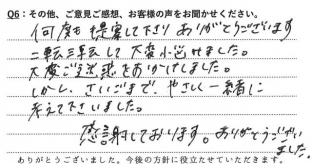 Q6：その他、ご意見ご感想、お客様の声をお聞かせください。
何度も提案して下さり ありがとうございます
二転三転して 大変小悩みました。
大変ご迷惑をおかけしました。
しかし、さいごまで、やさしく一緒に
考えて下さいました。
感謝しております。ありがとうござい
ました。
ありがとうございました。今後の方針に役立たせていただきます。